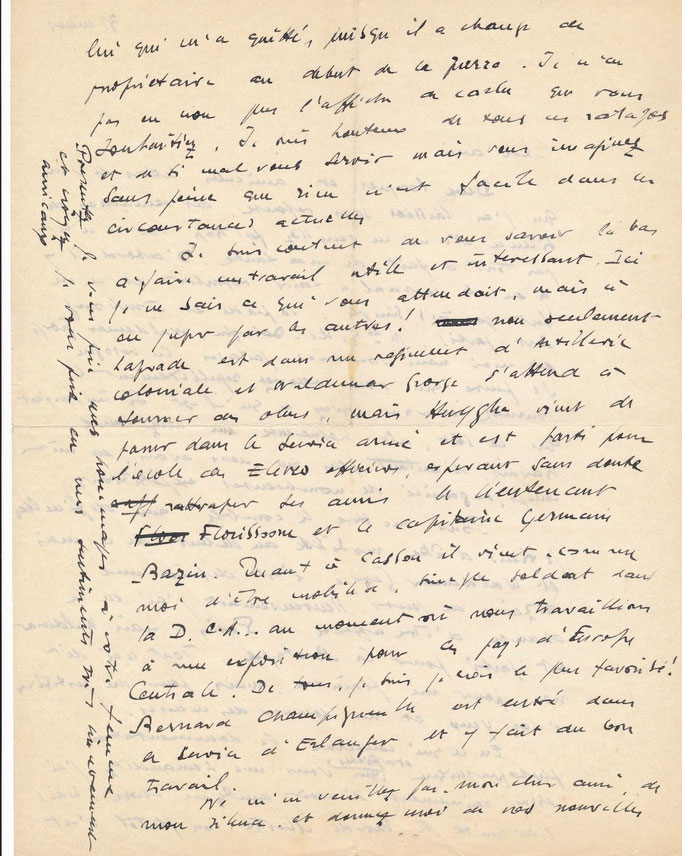 lui qui m'a quitté, puisqu'il a changé de
propriétaire au début de la guerre. Je n'ai
pas eu non plus l'affiche de Carlu que vous
souhaitiez. Je suis honteux de tous ces ratages
et de si mal vous servir mais vous imaginez
sans peine que rien n'est facile dans les
circonstances actuelles
Je suis content de vous savoir là bas
à faire un travail utile et intéressant. Ici
je ne sais ce qui vous attendait, mais à
en juger par les autres! non seulement
Laprade est dans un régiment d'Artillerie
coloniale et Waldemar George s'attend à
tourner des obus, mais Huyghe vient de
passer dans le service armé et est parti pour
l'école des Elèves officiers, espérant sans doute
rattraper ses amis le lieutenant
Florisoone et le capitaine Germain
Bazin. Quant à Cassou il vient comme
moi d'être mobilisé, simple soldat dans
la D.C.A... au moment où nous travaillions
à une exposition pour les pays d'Europe
Centrale. De tous, je suis je crois le plus favorisé!
Bernard Champigneulle est entré dans
le service d'Erlanger et y fait du bon
travail.
Ne m'en veuillez pas, mon cher ami, de
mon silence et donnez moi de vos nouvelles
Présentez je vous prie mes hommages à votre femme
et croyez je vous prie en mes sentiments très sincèrement
amicaux